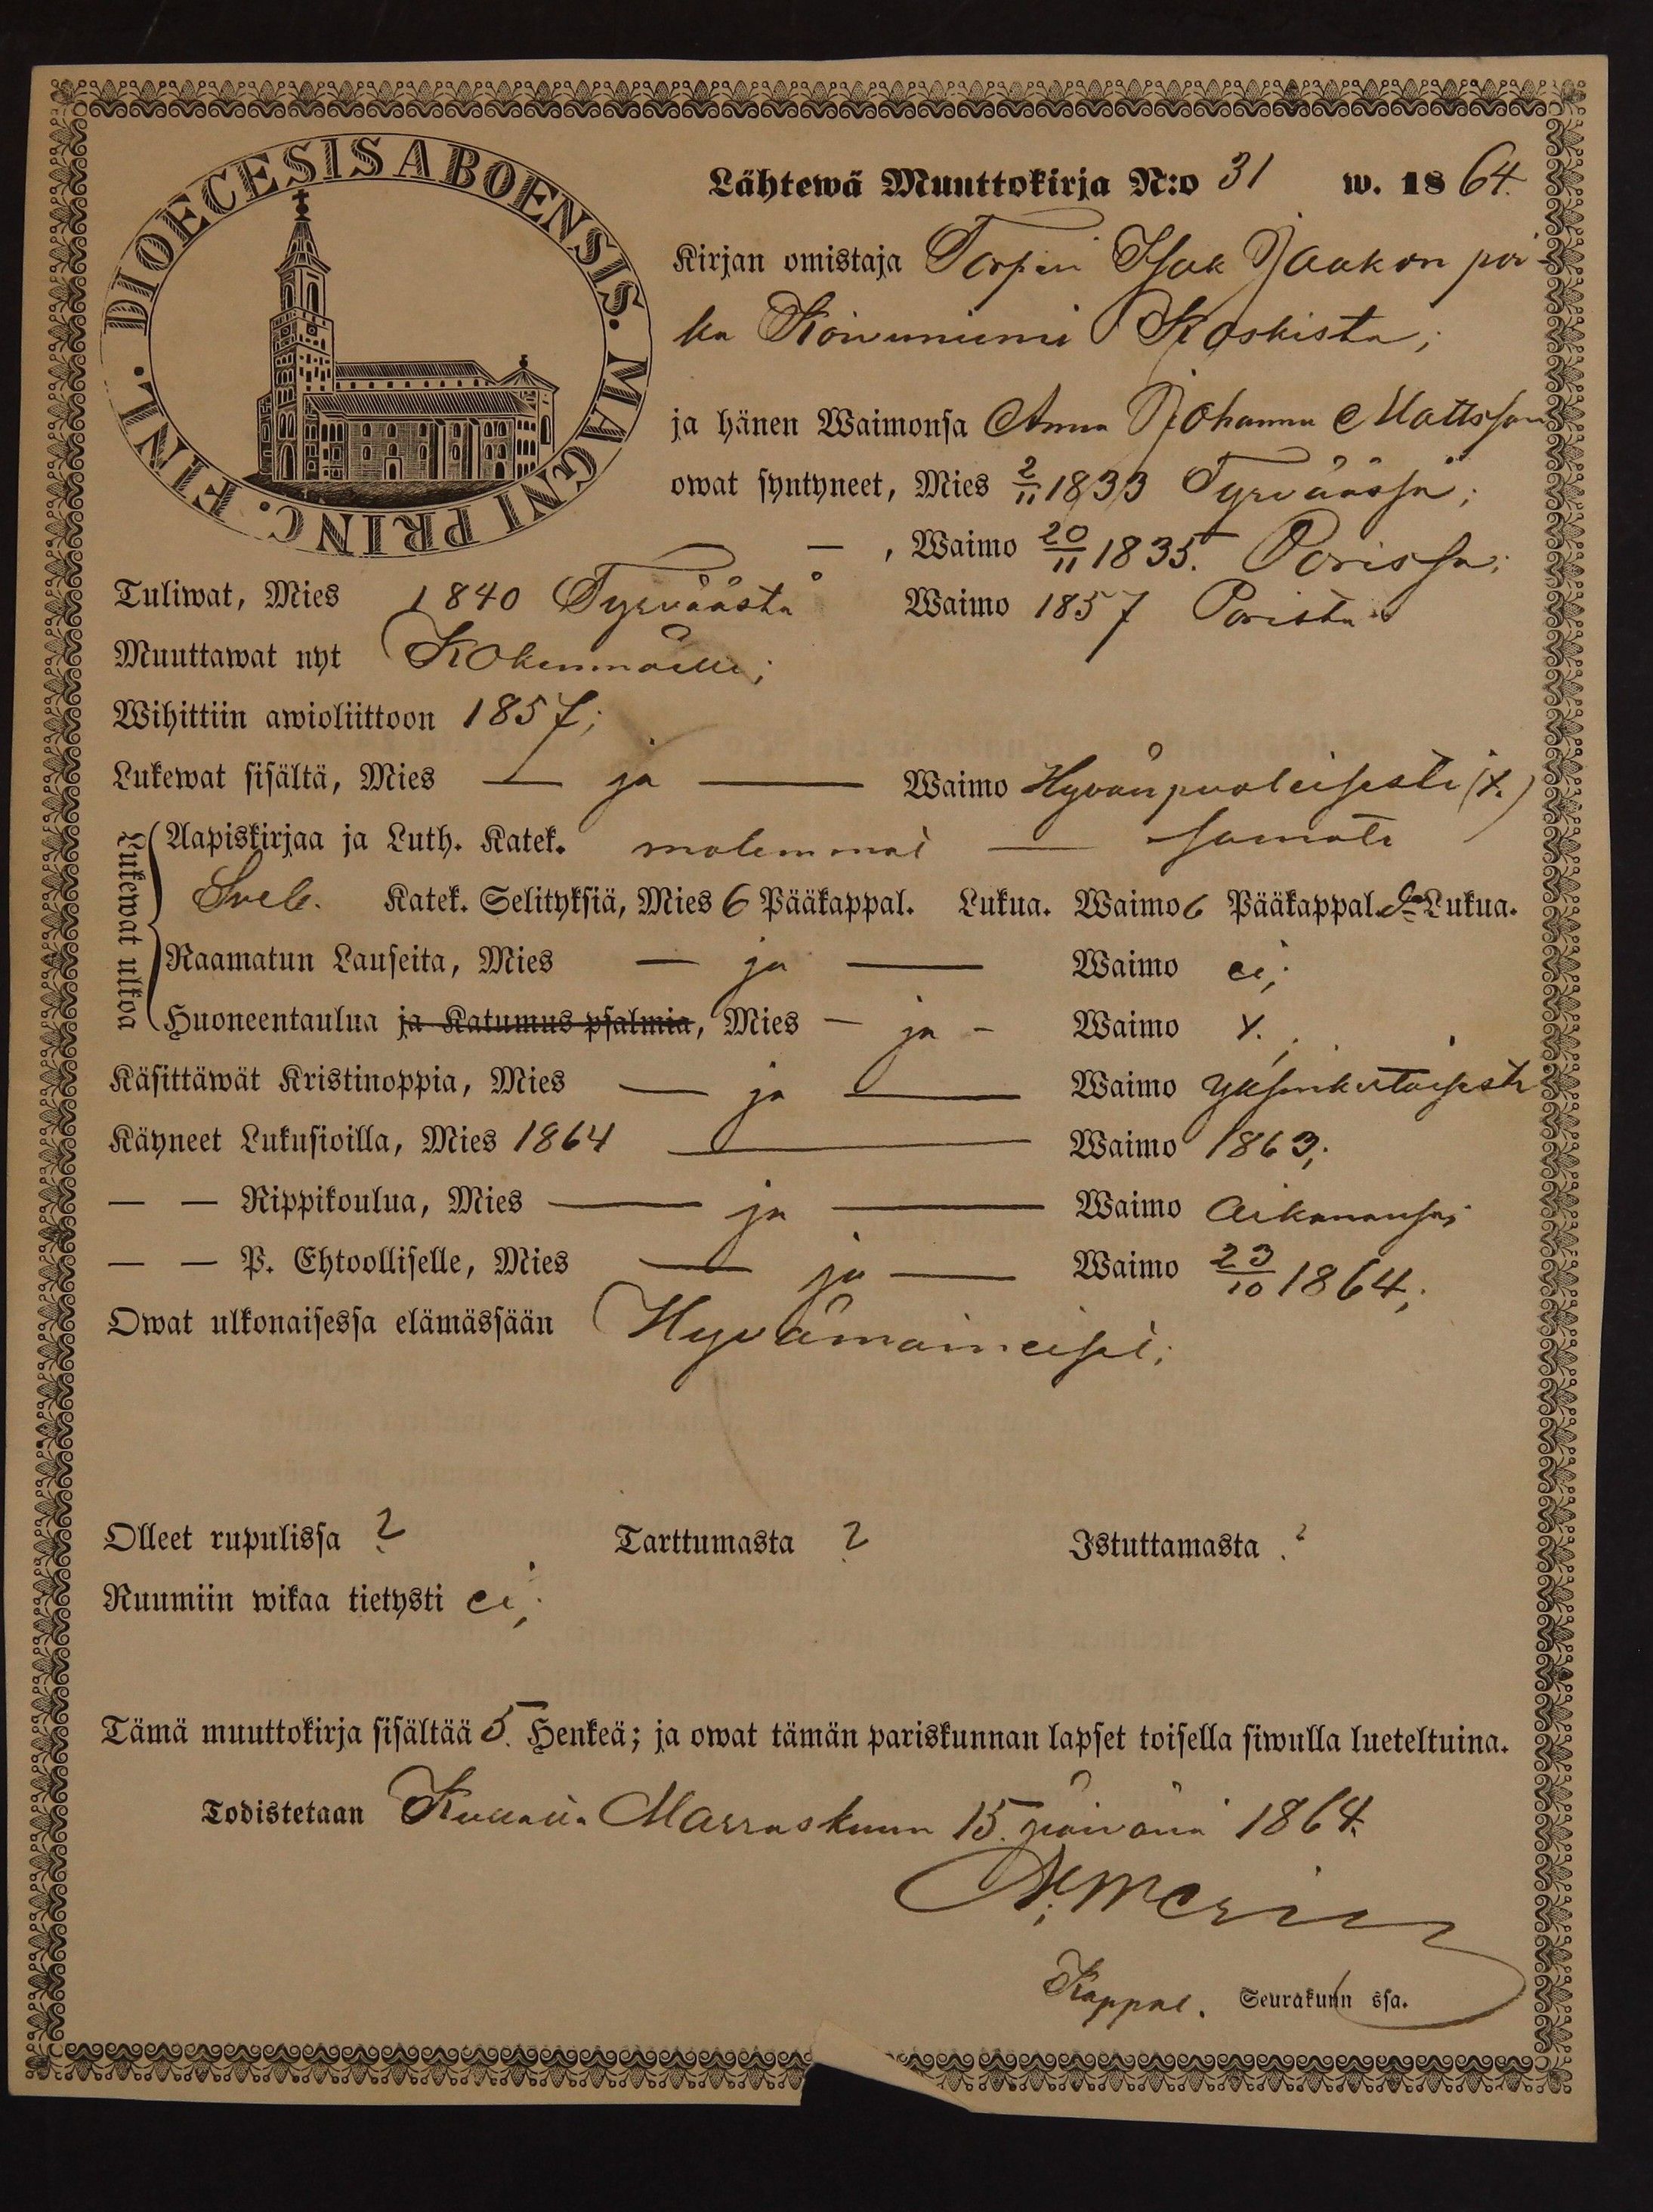 DIOECESIS ABOENSIS. MAGNI PRINC. FINL.
Lähtewä Muuttokirja N:o 31 w. 1864.
Kirjan omistaja Torpari Isak Jaakon poi-
ka Koivuniemi Koskista;
ja hänen Waimonsa Anna Johanna Mattsson
owat syntyneet, Mies 2/11 1833 Tyrväässä;
— , Waimo 20/11 1835. Porissa;
Tuliwat, Mies 1840 Tyrväästä Waimo 1857 Porista
Muuttawat nyt Kokemäelle;
Wihittiin awioliittoon 1857;
Lukewat sisältä, Mies — ja — Waimo Hyvänpuoleisesti (x.)
Lukewat ulkoa
Aapiskirjaa ja Luth. Katek. molemmat — samate
Sveb. Katek. Selityksiä, Mies 6 Pääkappal. Lukua. Waimo 6 Pääkappal. Lukua.
Raamatun Lauseita, Mies — ja — Waimo ei;
Huoneentaulua ja Katumus psalmia, Mies — ja — Waimo x.
Käsittäwät Kristinoppia, Mies — ja — Waimo yksinkertaisesti
Käyneet Lukusioilla, Mies 1864 — Waimo 1863;
— — Rippikoulua, Mies — ja — Waimo aikanansa;
— — P. Ehtoolliselle, Mies — ja — Waimo 23/10 1864;
Owat ulkonaisessa elämässään Hyvämaineiset;
Olleet rupulissa ? Tarttumasta ? Istuttamasta ?
Ruumiin wikaa tietysti ei;
Tämä muuttokirja sisältää 5. Henkeä; ja owat tämän pariskunnan lapset toisella siwulla lueteltuina.
Todistetaan Kullaalla Marraskuun 15. päivänä 1864.
Kappal. Seurakunn ssa.